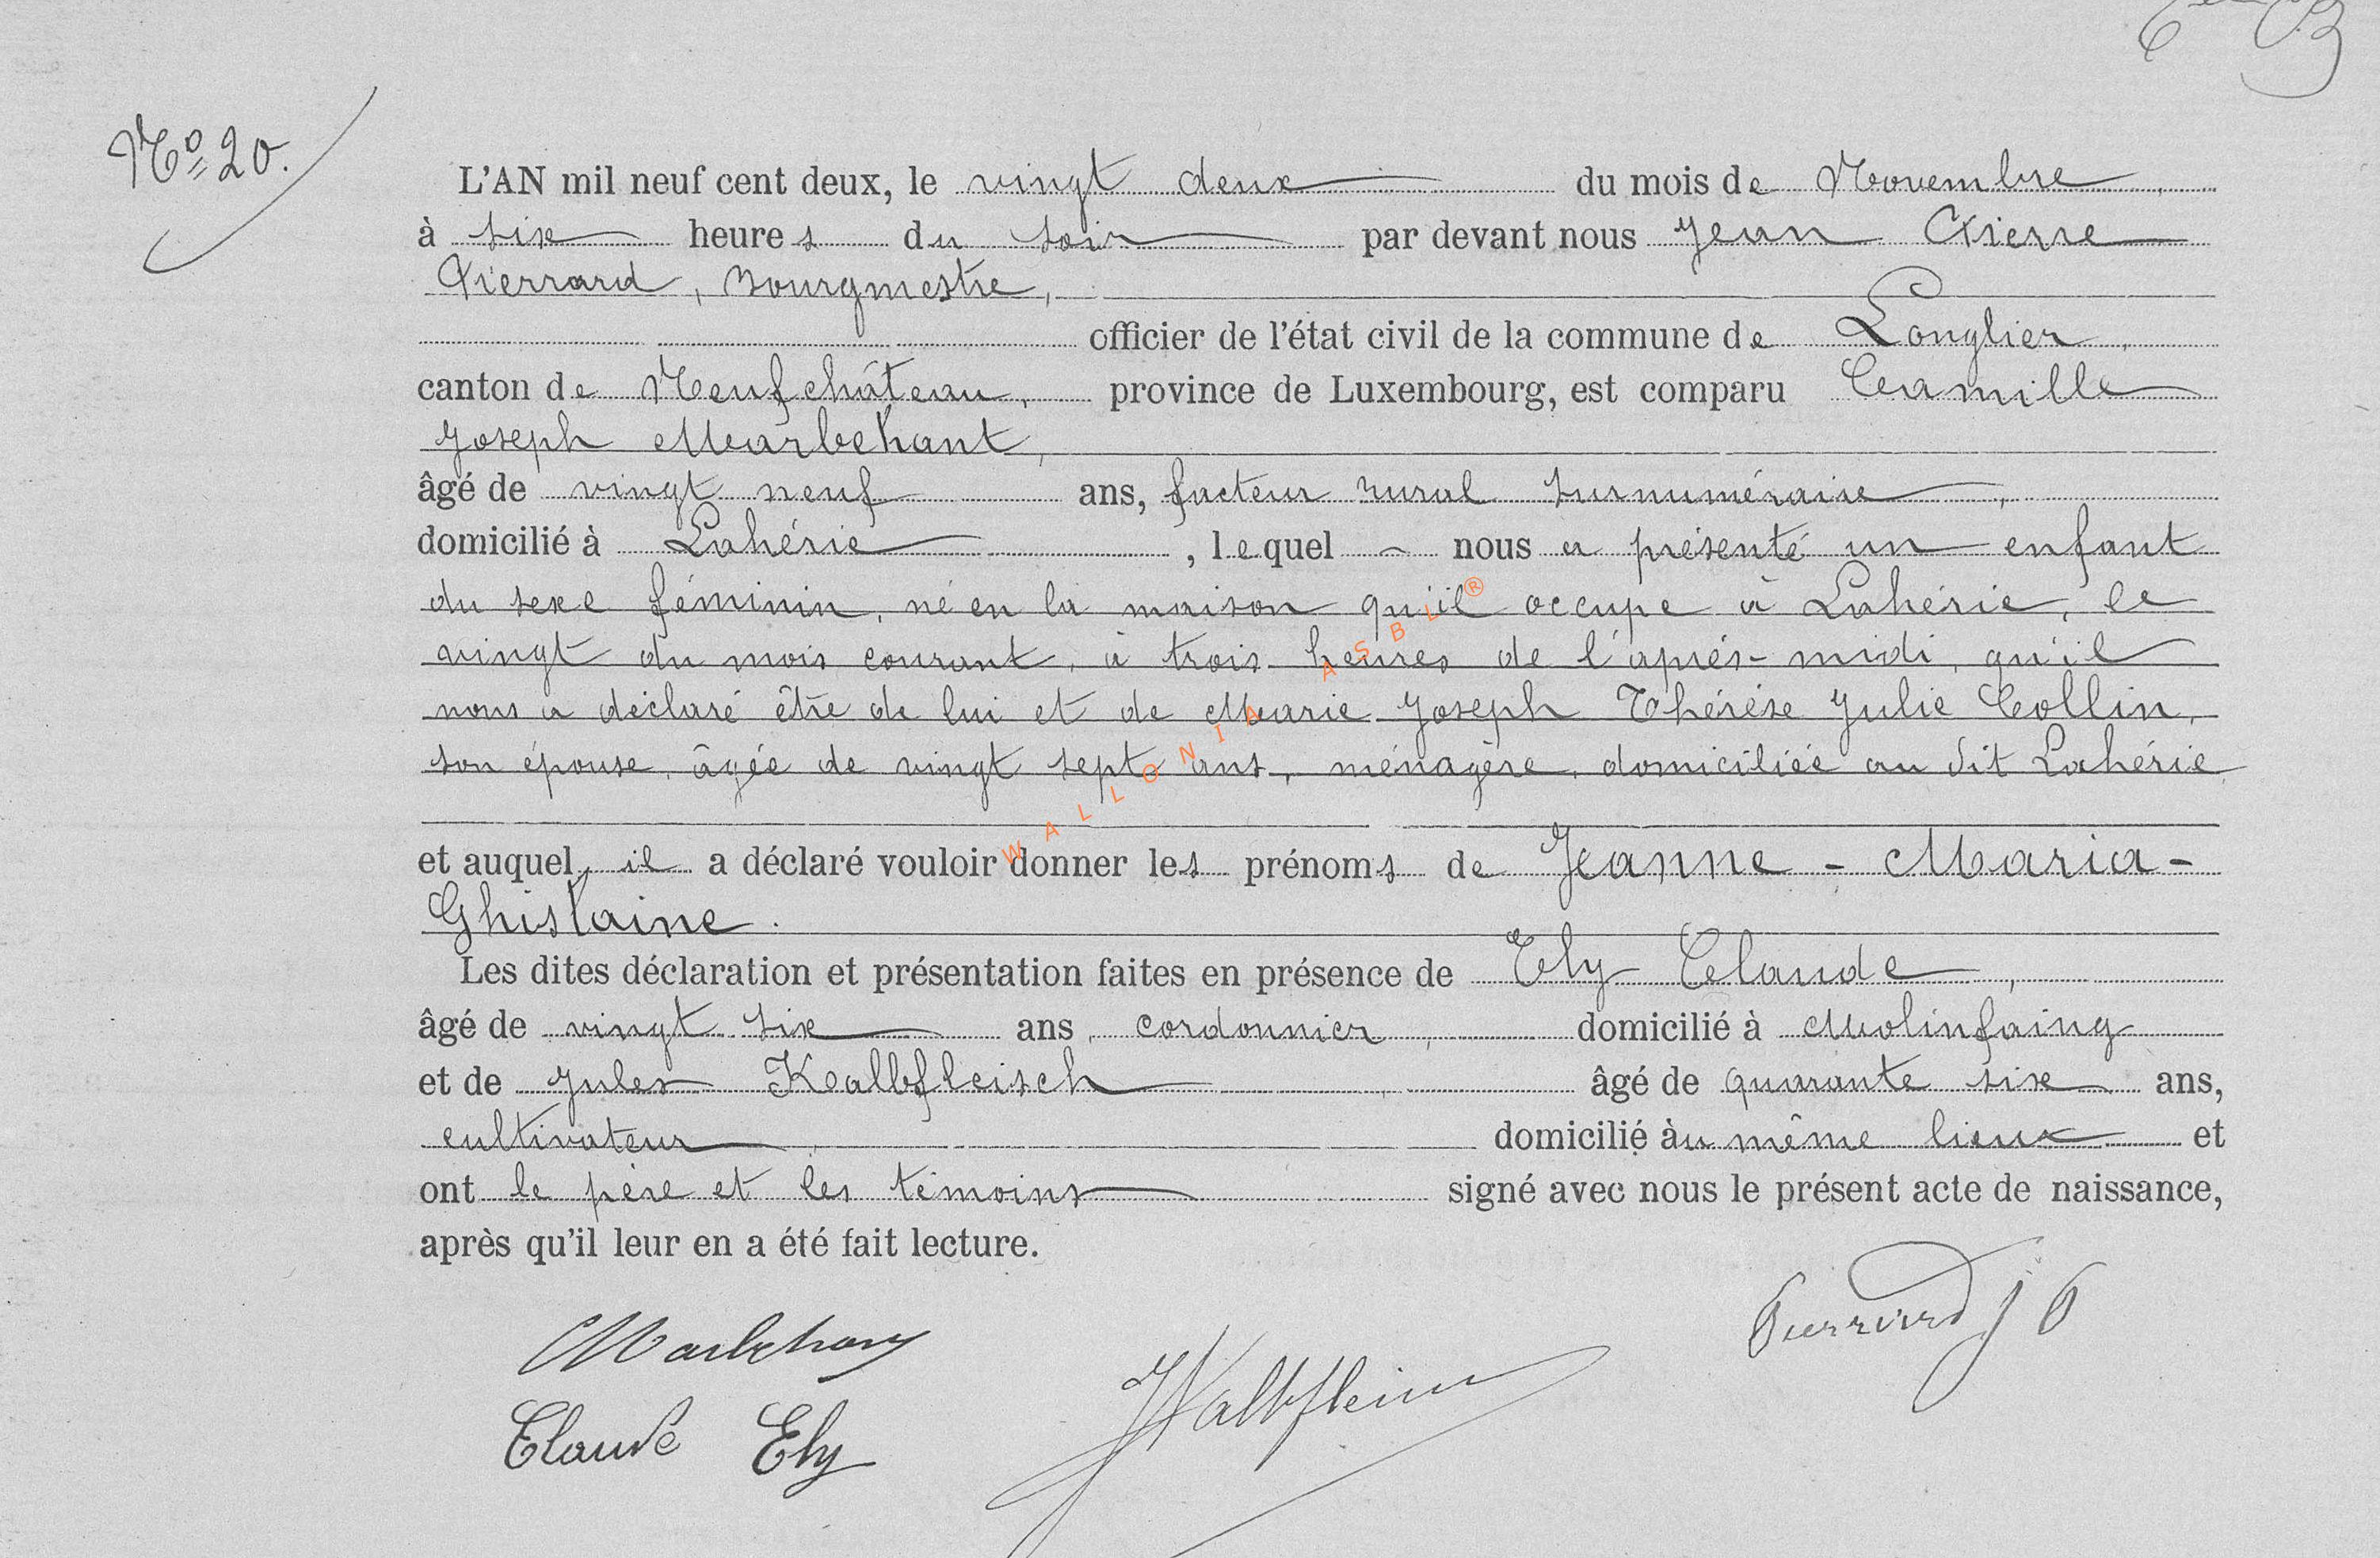 Nº 20.
L'AN mil neuf cent deux, le vingt deux du mois de Novembre
à six heures du soir par devant nous Jean Pierre
Pierrard, Bourgmestre,
officier de l'état civil de la commune de Longlier,
canton de Neufchâteau, province de Luxembourg, est comparu Camille
Joseph Marbehant,
âgé de vingt neuf ans, facteur rural surnuméraire,
domicilié à Lahérie, lequel nous a présenté un enfant
du sexe féminin, né en la maison qu'il occupe à Lahérie, le
vingt du mois courant, à trois heures de l'après-midi, qu'il
nous a déclaré être de lui et de Marie Joseph Thérèse Julie Collin,
son épouse, âgée de vingt sept ans, ménagère, domiciliée au dit Lahérie
et auquel il a déclaré vouloir donner les prénoms de Jeanne - Maria -
Ghislaine.
Les dites déclaration et présentation faites en présence de Ely Claude,
âgé de vingt six ans, cordonnier, domicilié à Molinfaing
et de Jules Kalbfleisch âgé de quarante six ans,
cultivateur domicilié àu même lieux et
ont le père et les témoins signé avec nous le présent acte de naissance,
après qu'il leur en a été fait lecture.
Pierrard J P
Marbehant
Claude Ely
WALLONIA ASBL ®